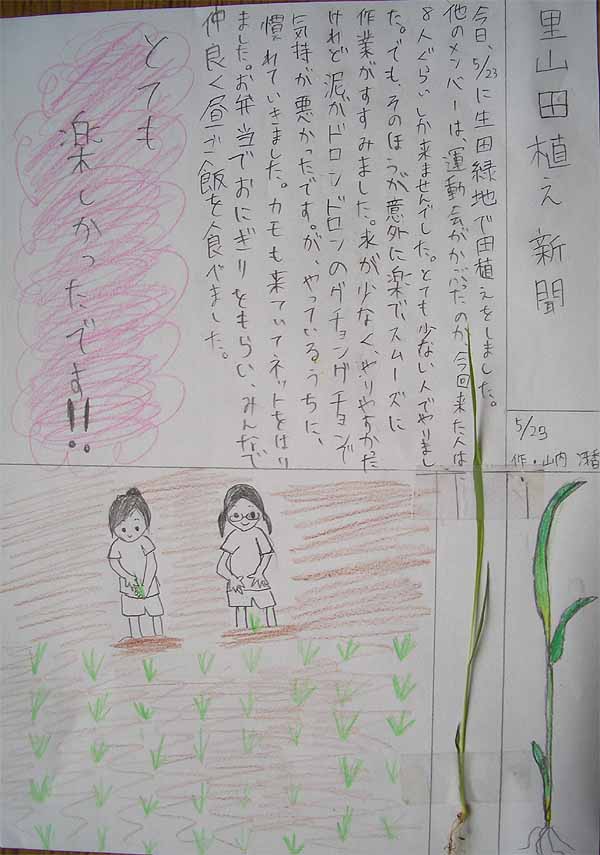 里山田植え新聞
5/23
作・山内
今日、5/23に生田緑地で田植えをしました。
他のメンバーは、運動会がかぶったのか、今回来た人は、
8人ぐらいしか来ませんでした。とても少ない人でやりまし
た。でも、そのほうが意外に楽でスムーズに
作業がすすみました。水が少なく、やりやすかた
けれど泥がドロンドロンのグチョングチョンで
気持が悪かったです。が、やっているうちに、
慣れていきました。カモも来ていてネットをはり
ました。お弁当でおにぎりをもらい、みんなで
仲良く昼ご飯を食べました。
とても
楽しかったです!!